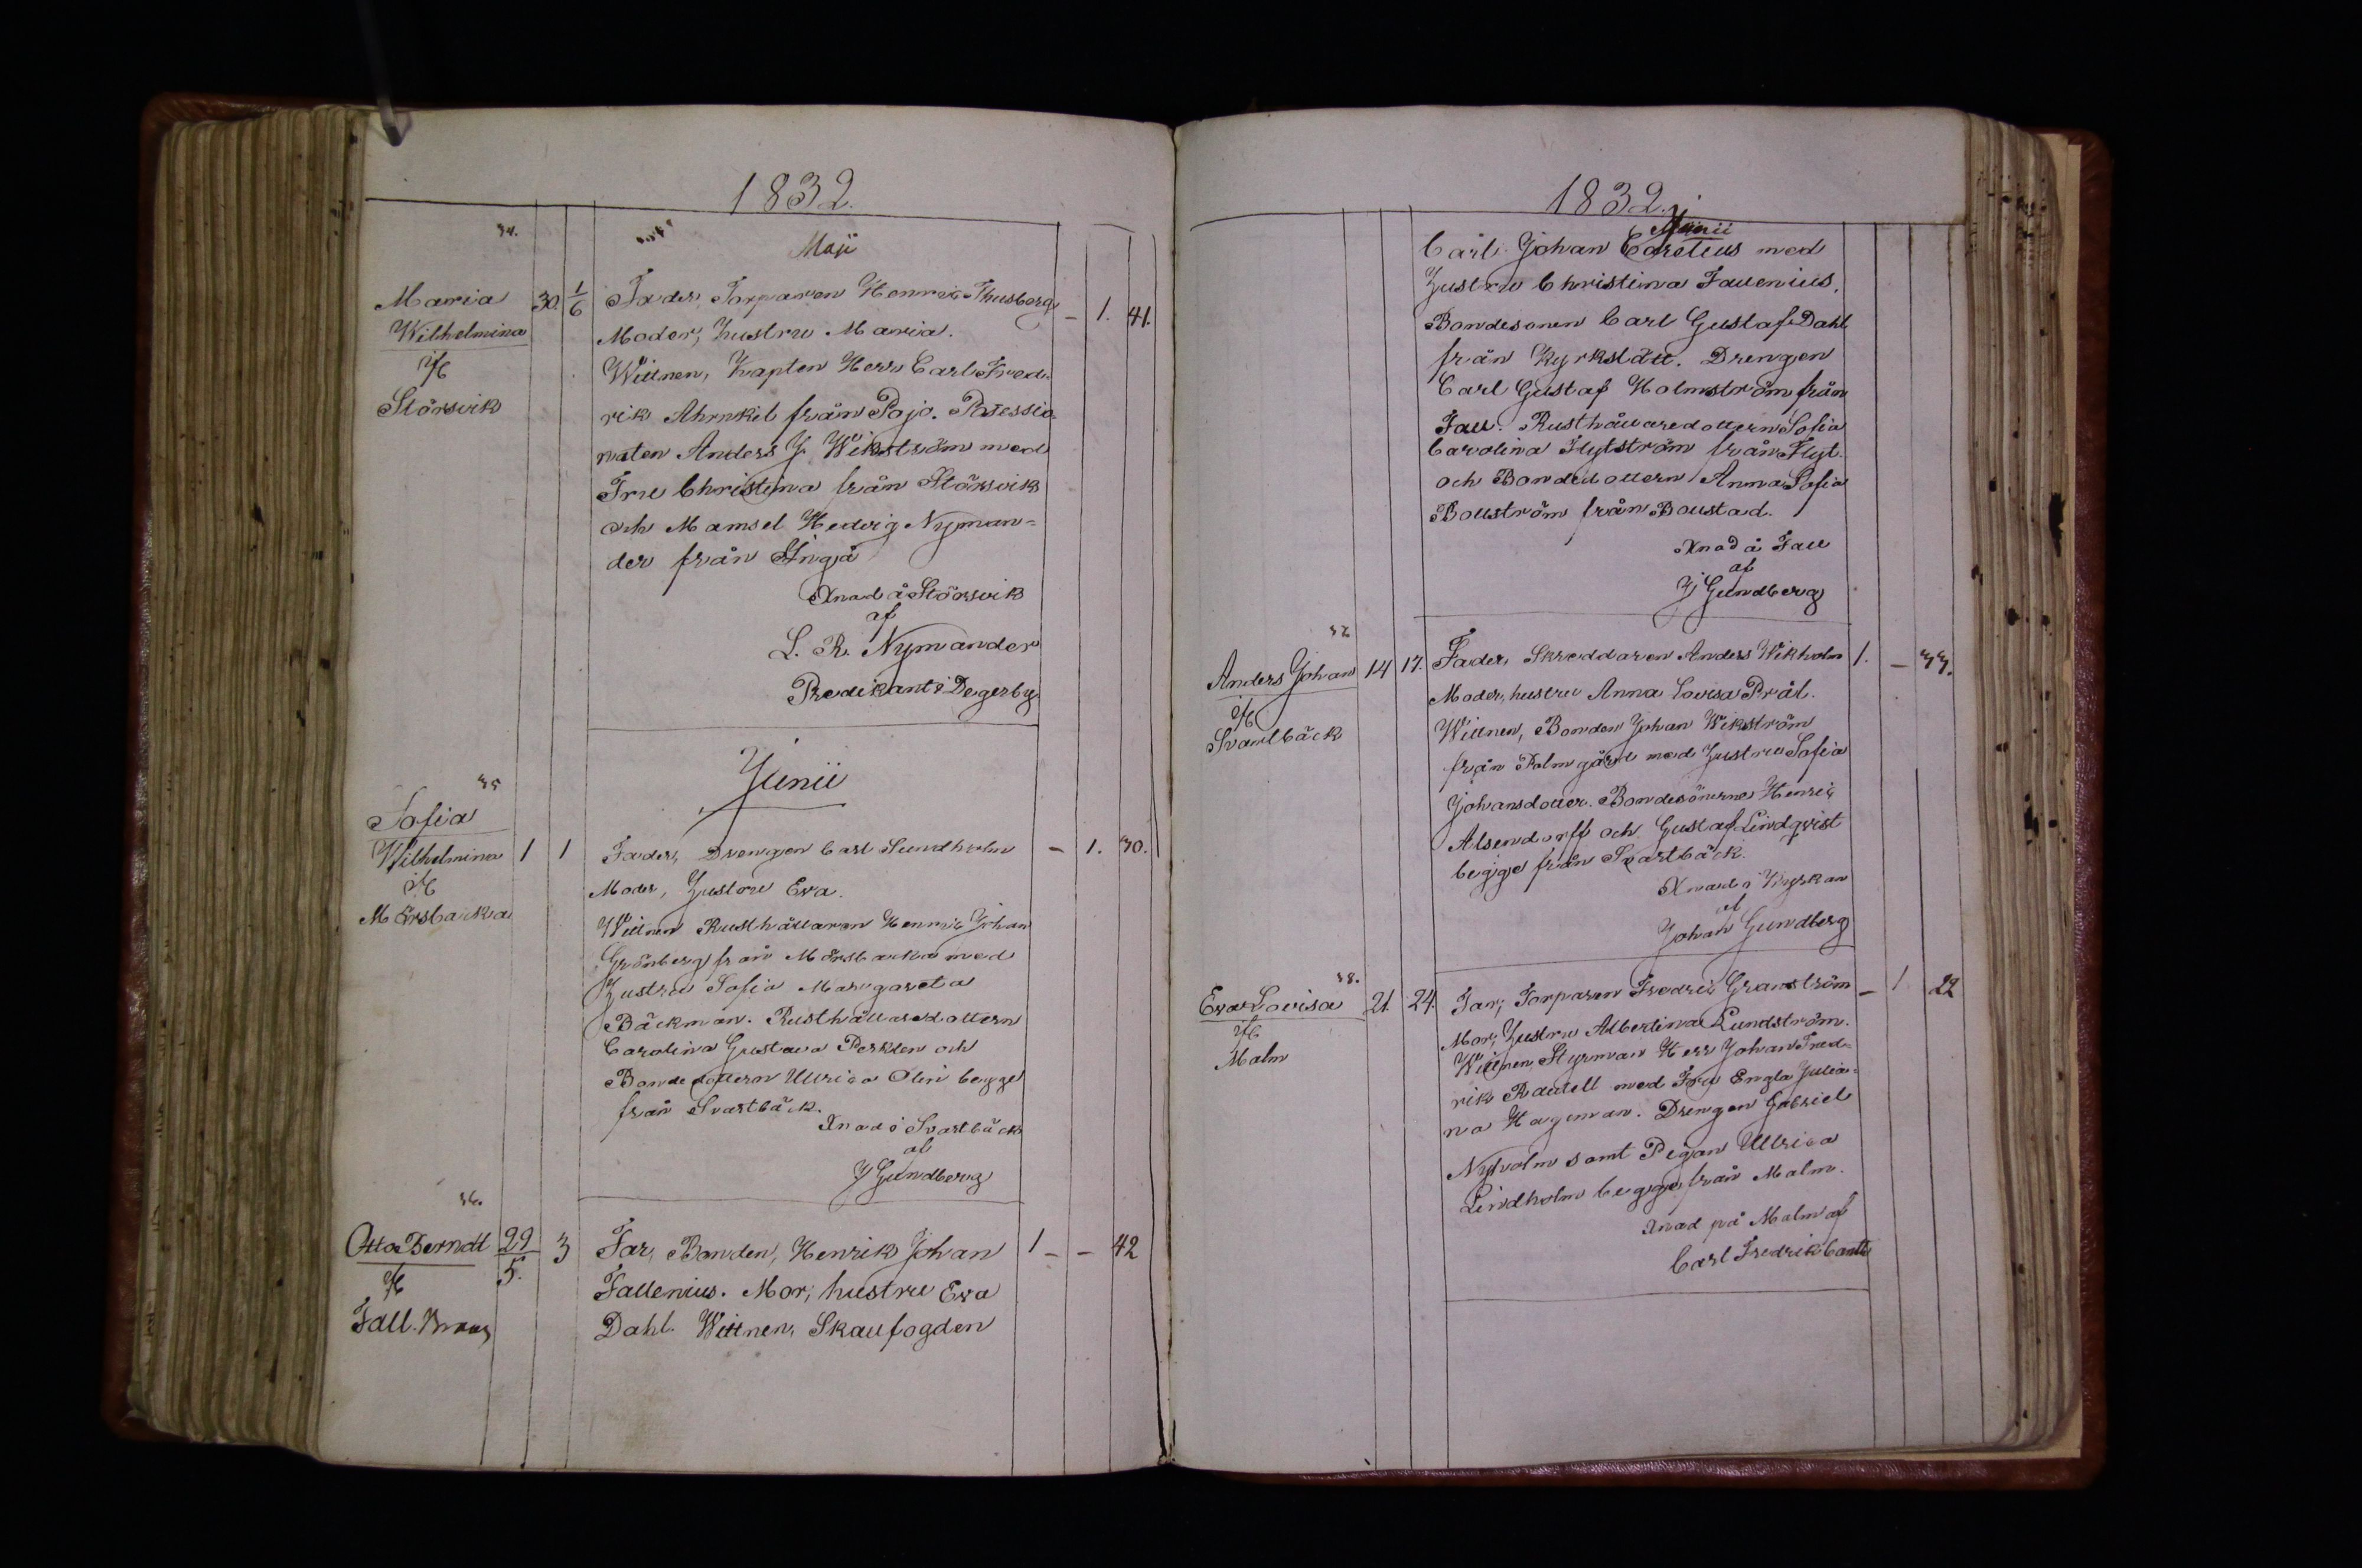 1832.
34.
Maji
Maria 30. 1/6 Fader, Torparen Henric Thusberg – 1. 41.
Wilhelmina Moder, hustru Maria.
if
Störsvik
Wittnen, Kapten Herr Carl Fred-
rik Ahrnkil från Pojo. Possessio
naten Anders J. Wikström med
Fru Christina från Störsvik
och Mamsel Hedvig Nyman=
der från Ingå
Xnad å Störsvik
af
L. R. Nymander
Predikant i Degerby
Junii
35
Sofia
Wilhelmina 1 1 Fader, Drengen Carl Sundholm – 1. 30.
if
Mörsbacka
Moder, Hustru Eva.
Wittnen Rusthållaren Henric Johan
Grönberg från Mörsbacka med
Hustru Sofia Margareta
Bäckman. Rusthållaredottern
Carolina Gustava Perklen och
Bondedottern Ullrica Olin begge
från Svartbäck.
Xnad i Svartbäck
af
J Gundberg
36.
Otto Berndt 29/5. 3 Far, Bonden, Henrik Johan 1 – – 42
if
Fall.
Fallenius. Mor; hustru Eva
Dahl. Wittnen, Skaufogden
1832.
Junii
Carl Johan Coretius med
Hustru Christina Fallenius.
Bondesonen Carl Gustaf Dahl
från Kyrkslätt. Drengen
Carl Gustaf Holmström från
Fall. Rusthållaredottern Sofia
Carolina Flytström från Flyt.
och Bondedottern Anna Sofia
Bollström från Bollstad.
Xnad å Fall
af
J Gundberg
37
Anders Johan 14 17. Fader, Skreddaren Anders Wikholm 1. – 33.
if
Svartbäck
Moder, hustru Anna Lovisa Prål.
Wittnen, Bonden Johan Wikström
från Palmgård med Hustru Sofia
Johansdotter. Bondesönerne Henric
Alsendorff och Gustaf Lindqvist
begge från Svartbäck.
Xnad i Kyrkan
af
Johan Gundberg
38.
Eva Lovisa 21. 24. Far; Torparen Fredric Granström – 1 22
if
Malm
Mor; Hustru Albertina Lundström.
Wittnen, Styrman Herr Johan Fred=
rik Rautell med Fru Engla Julia=
na Hagman. Drengen Gabriel
Nyholm samt Pigan Ullrica
Lindholm begge från Malm.
Xnad på Malm af
Carl Fredrik Canth